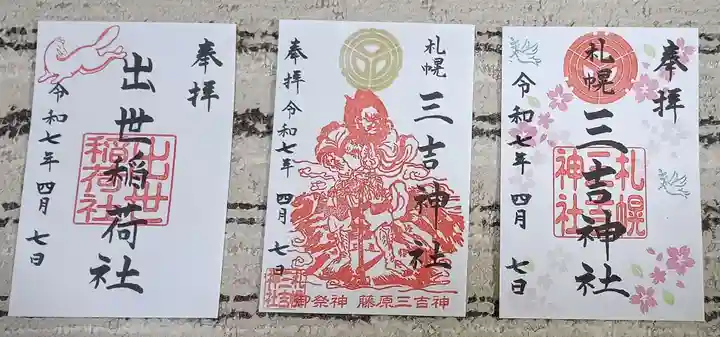 奉拝
出世稲荷社
出世稲荷社
令和七年 四月 七日
札幌
三吉神社
奉拝 令和七年 四月 七日
御祭神 藤原三吉神
奉拝
札幌
三吉神社
札幌三吉神社
令和七年 四月 七日